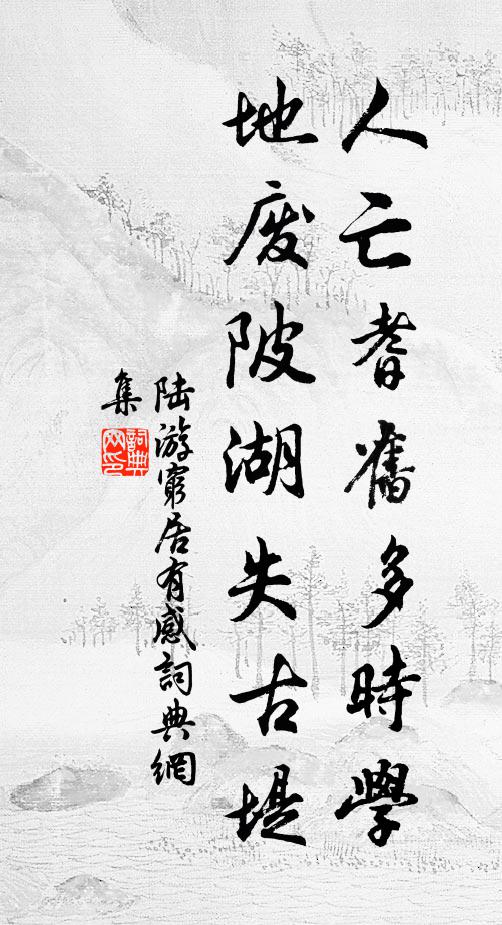 人亡耆舊多時學
地废陂湖失古堤
陆游窮居有感詞典網
集
詞典
网印